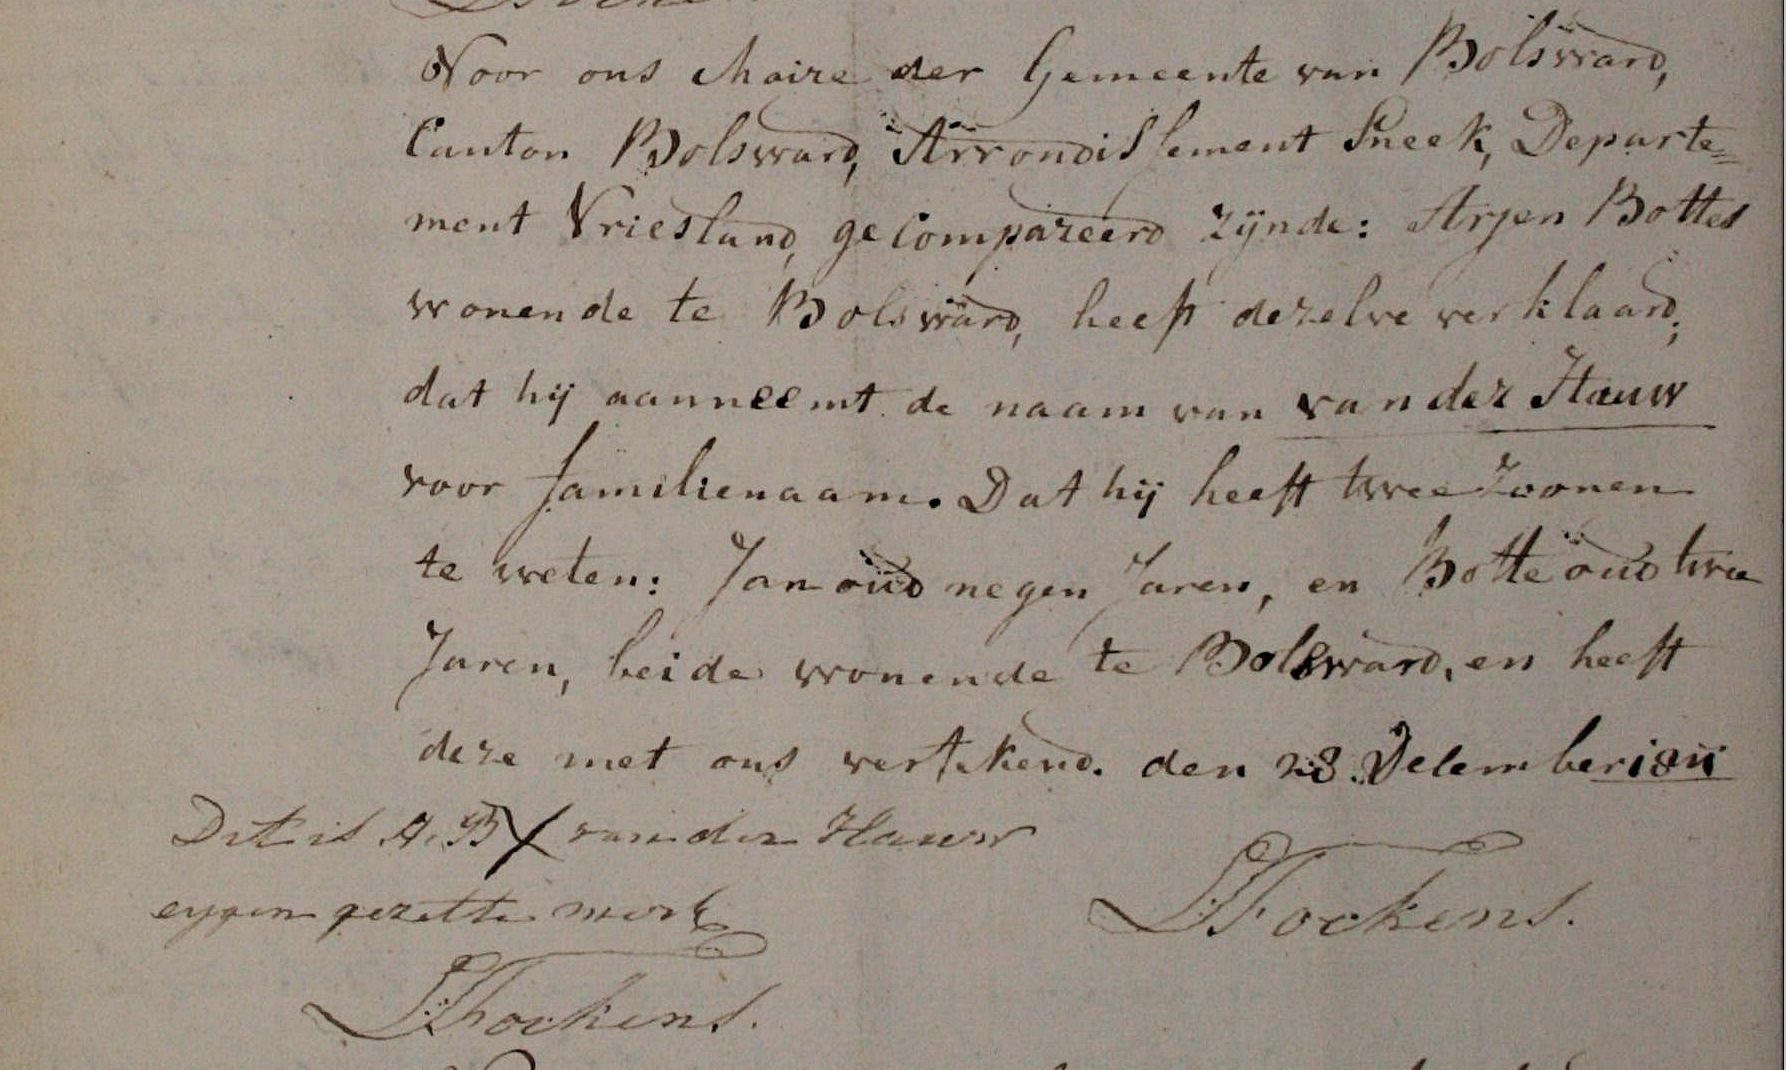 Voor ons Maire der Gemeente van Bolsward,
Canton Bolsward, Arrondissement Sneek, Departe=
ment Vriesland, gecompareerd zijnde: Arjen Bottes
wonende te Bolsward, heeft dezelve verklaard,
dat hij aanneemt de naam van van der Hauw
voor familienaam. Dat hij heeft twee Zoonen
te weten: Jan oud negen Jaren, en Botte oud twee
Jaren, beide wonende te Bolsward, en heeft
deze met ons vertekend. den 28 December 1811
Dit is A. B X van der Hauw
eygen gezette merk
Fockens.
Fockens.